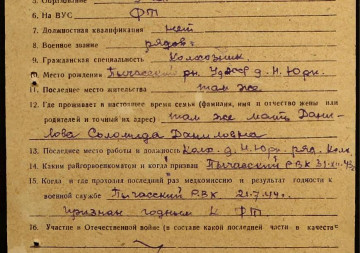 6. На ВУС ФТ
7. Должностная квалификация нет
8. Военное звание рядов.
9. Гражданская специальность Колхозник
10. Место рождения Пычасский рн. УдАССР д. Н. Юри.
11. Последнее место жительства там же
12. Где проживает в настоящее время семья (фамилия, имя и отчество жены или
родителей и точный их адрес) там же мать Дани-
лова Соломида Даниловна
13. Последнее место работы и должность Колх. д. Н. Юри. ряд. Кол.
14. Каким райгорвоенкоматом и когда призван Пычасский РВК
15. Когда и где проходил последний раз медкомиссию и результат годности к
военной службе Пычасский РВК 21.7.44 г.
признан годным к ФТ
16. Участие в Отечественной войне (в составе какой последней части и в качестве